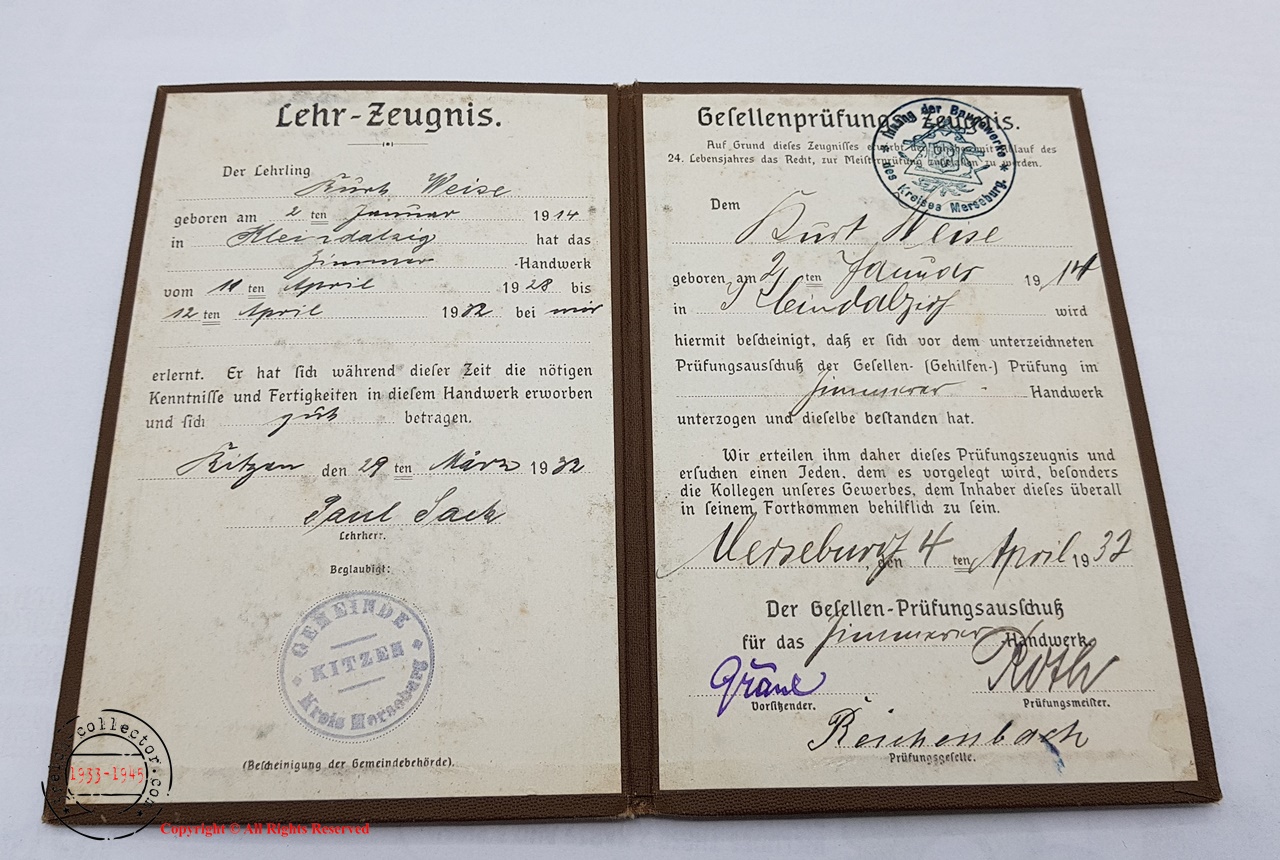 Lehr-Zeugnis.
Der Lehrling Kurt Weise
geboren am 2 ten Januar 1914
in Kleindalzig hat das
Zimmer -Handwerk
vom 11 ten April 1928 bis
12 ten April 1932 bei mir
erlernt. Er hat sich während dieser Zeit die nötigen
Kenntnisse und Fertigkeiten in diesem Handwerk erworben
und sich gut betragen.
Kitzen den 29 ten März 1932
Paul Sack
Lehrherr.
Beglaubigt:
GEMEINDE
KITZEN
Kreis Merseburg
(Bescheinigung der Gemeindebehörde).
Gesellenprüfungs-Zeugnis.
Auf Grund dieses Zeugnisses erwirbt der Inhaber mit Ablauf des
24. Lebensjahres das Recht, zur Meisterprüfung zugelassen zu werden.
Innung der Baugewerke
des Kreises Merseburg.
Dem
Kurt Weise
geboren am 2 ten Januar 1914
in Kleindalzig wird
hiermit bescheinigt, daß er sich vor dem unterzeichneten
Prüfungsausschuß der Gesellen- (Gehilfen-) Prüfung im
Zimmerer - Handwerk
unterzogen und dieselbe bestanden hat.
Wir erteilen ihm daher dieses Prüfungszeugnis und
ersuchen einen Jeden, dem es vorgelegt wird, besonders
die Kollegen unseres Gewerbes, dem Inhaber dieses überall
in seinem Fortkommen behilflich zu sein.
Merseburg, den 4 ten April 1932
Der Gesellen-Prüfungsausschuß
für das Zimmerer -Handwerk.
Gräul Roth
Vorsitzender. Prüfungsmeister.
Reichenbach
Prüfungsgeselle.
collector.com
1933-1945
Copyright © All Rights Reserved